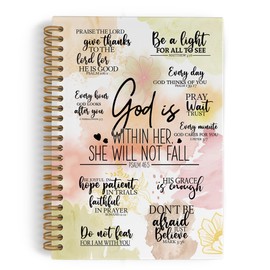 PRAISE THE LORD
give thanks
TO THE
lord for
HE IS GOOD
Be a light
FOR ALL TO SEE
Every day
GOD THINKS OF YOU
PSALM 139:17
Every hour
GOD LOOKS
after you
PRAY
WAIT
TRUST
Every minute
GOD CARES FOR YOU
God is
WITHIN HER,
SHE WILL NOT FALL
PSALM 46:5
BE JOYFUL IN
hope patient
IN TRIALS
faithful
IN PRAYER
HIS GRACE
is enough
DON'T BE
afraid
JUST
Believe
MARK 5:36
Do not fear
FOR I AM WITH YOU